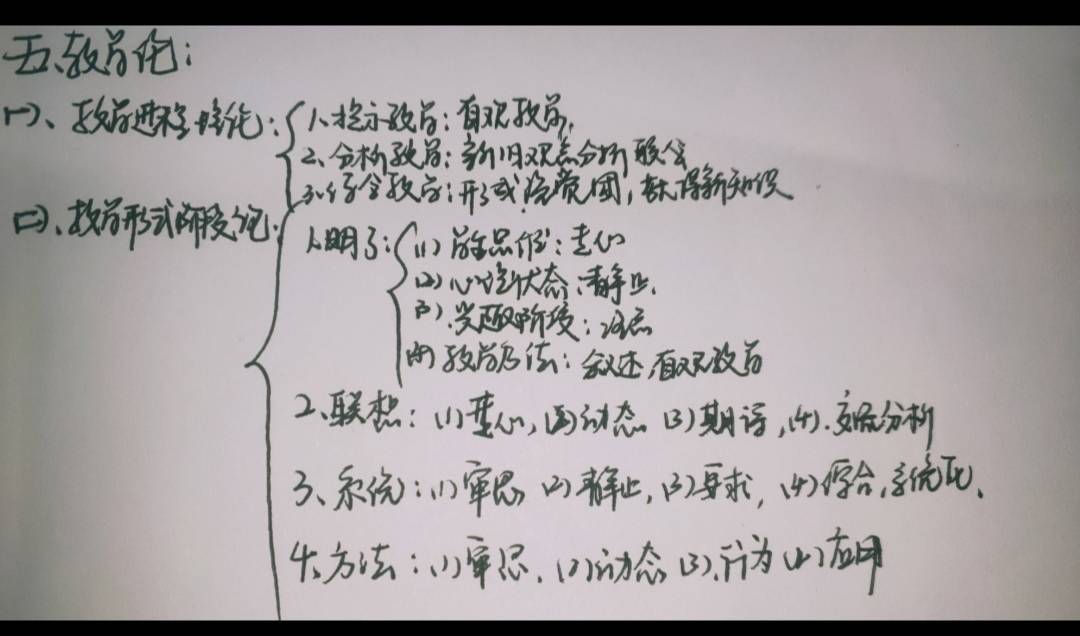 五、教学论:
(一)、教学进程理论: 1、提示教学:直观教学,
2、分析教学:新旧观念分析联合
3、综合教学:形成 统觉团,获得新知识
(二)、教学形式阶段论:
1、明了: (1) 学生思维:专心
(2) 心理状态:静止,
(3) 兴趣阶段:注意
(4) 教学方法:叙述,直观教学
2、联想:(1)专心,(2)动态 (3)期待,(4).交谈分析
3、系统:(1)审思 (2)静止,(3)要求,(4)综合,系统化、
4、方法:(1)审思、(2)动态 (3)、行为 (4)应用